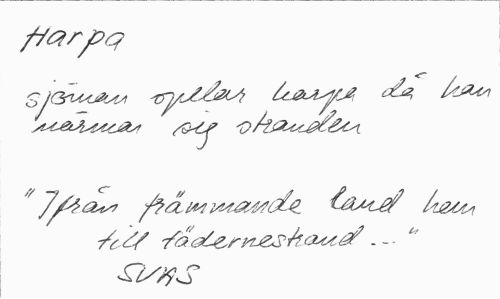 Harpa
sjöman spelar harpa då han
närmar sig stranden
"Ifrån främmande land hem
till fädernestrand..."
SVAS